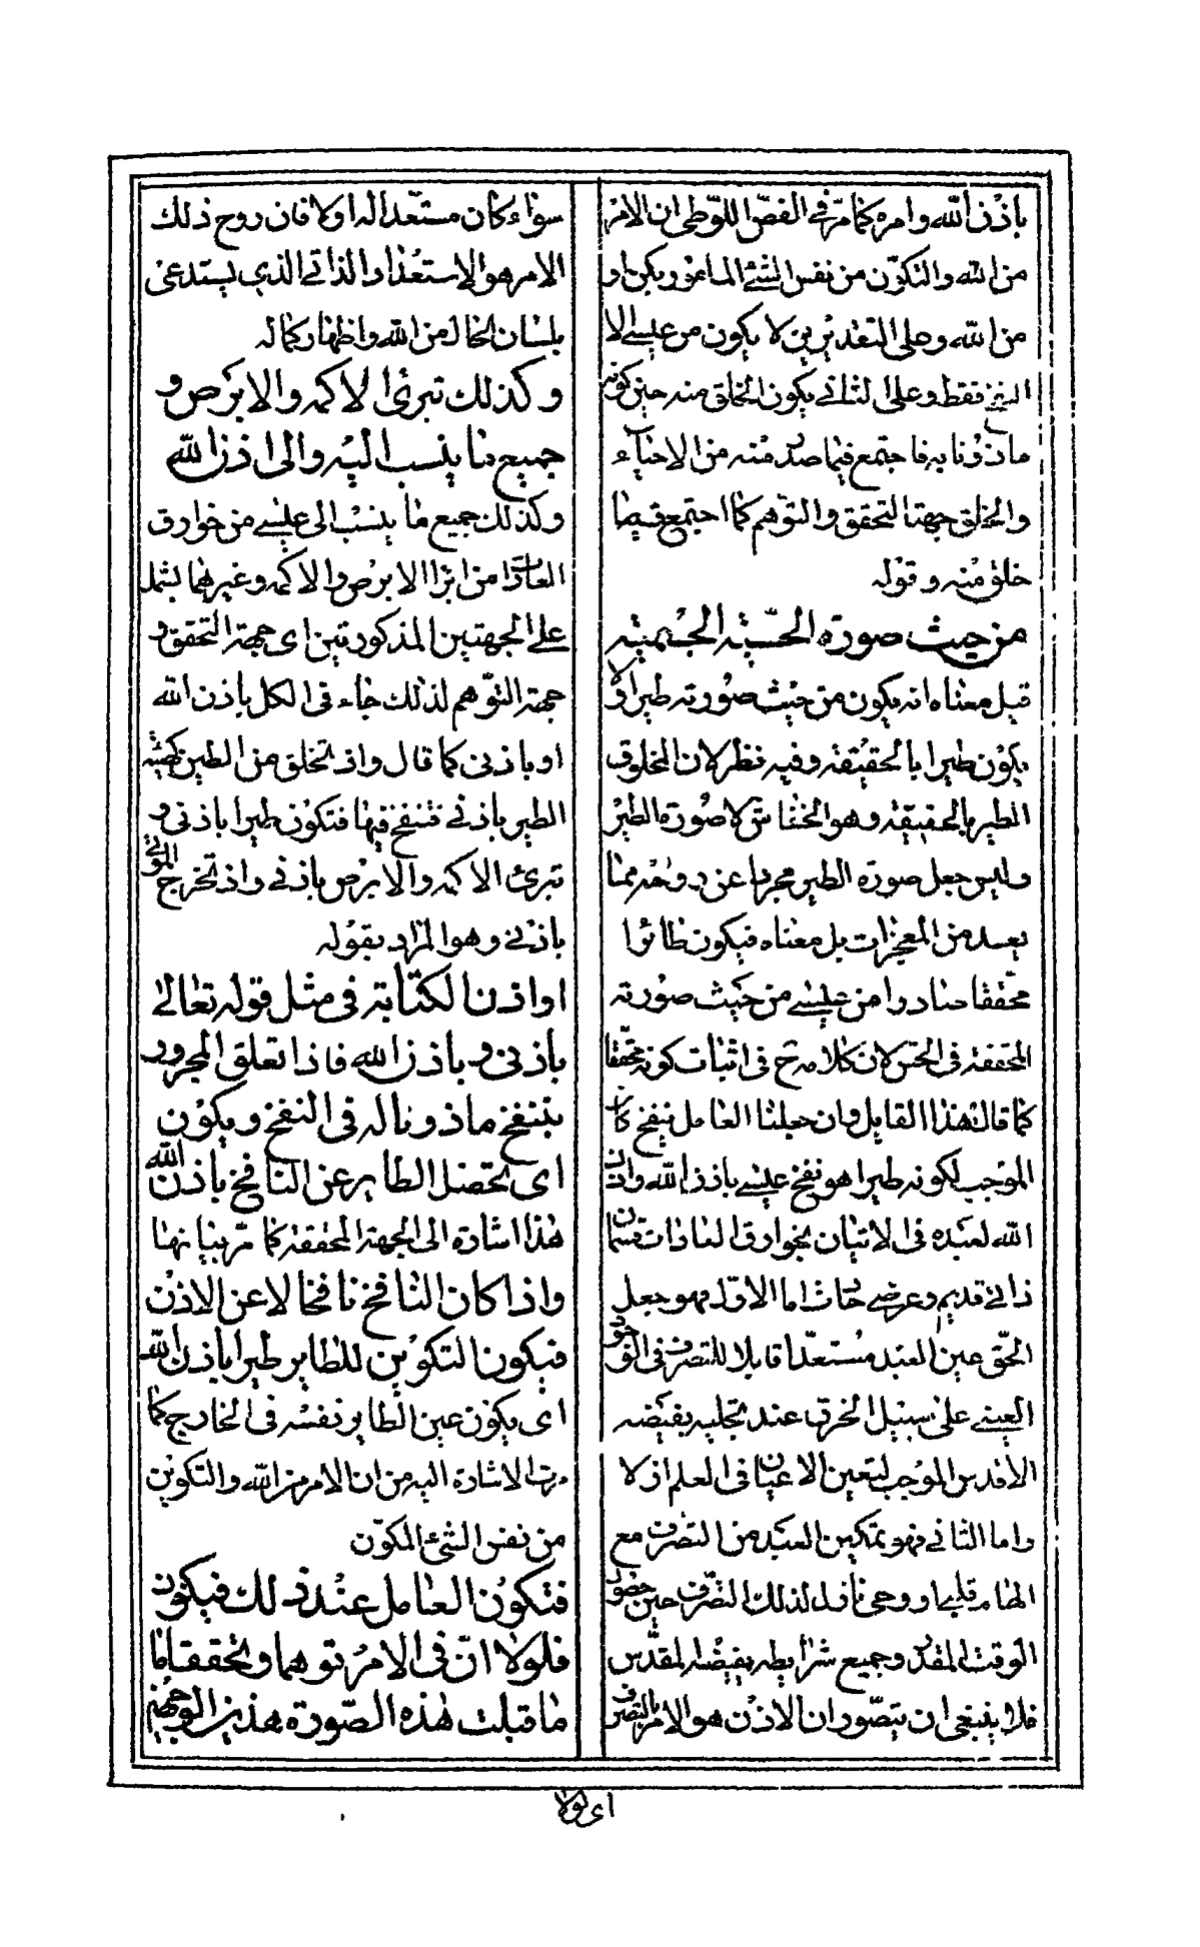 باذن الله وامره كما مرّ في الفصّ اللوطى ان الامر
من الله والتكوّن من نفس الشئ المامور بكن او
من الله وعلى التقديرين لا يكون من عيسى الا
النفخ فقط وعلى الثانى يكون الخلق منه حين كونه
ماذونا به فاجتمع فيما صدر منه من الاحياء
والخلق جهتا التحقق والتوهم كما اجتمع فيما
خلق منه وقوله
من حيث صورته الحسّيّه الجسميّه
قيل معناه انه يكون من حيث صورته طيرا ولا
يكون طيرا بالحقيقة وفيه نظر لان المخلوق
الطير بالحقيقة وهو الخفاش لا صورة الطير
وليس جعل صورة الطير مجردا عن روحه مما
يعد من المعجزات بل معناه فيكون طائرا
محققا صادرا من عيسى من حيث صورته
المحققة فى الحس لان كلامه ح فى اثبات كونه محققا
كما قال هذا القايل وان جعلنا العامل ينفخ كان
الموجب لكونه طيرا هو نفخ عيسى باذن الله واذن
الله لعبده فى الاتيان بخوارق العادات قسمان
ذاتى قديم وعرضى حادث اما الاول فهو جعل
الحق عين العبد مستعدّا قابلا للتصرف فى الوجود
العينى على سبيل الخرق عند تجليه بفيضه
الاقدس الموجب لتعين الاعيان فى العلم ازلا
واما الثانى فهو تمكين العبد من التصرف مع
الهام قلبى او وحى نازل لذلك التصرف حين حضور
الوقت المقدر وجميع شرايطه بفيضه المقدّس
فلا ينبغى ان يتصّور ان الاذن هو الامر بالتصرف
سواء كان مستعّدا له او لا فان روح ذلك
الامر هو الاستعداد الذاتى الذى يستدعى
بلسان الحال من الله واظهار كماله
وكذلك تبرئ الاكمه والابرص و
جميع ما ينسب اليه والى اذن الله
وكذلك جميع ما ينسب الى عيسى من خوارق
العادات من ابراا الابرص والاكمه وغيرهما يشمل
على الجهتين المذكورتين اى جهة التحقق و
جهة التوّهم لذلك جاء فى الكل باذن الله
او باذنى كما قال واذ تخلق من الطين كهيئة
الطير باذنى فتنفخ فيها فتكون طيرا باذنى و
تبرئ الاكمه والابرص باذنى واذ تخرج الموتى
باذنى وهو المراد بقوله
او اذن الكتابة فى مثل قوله تعالى
باذنى وباذن الله فاذا تعلق المجرور
بتنفخ ماذونا له فى النفخ ويكون
اى تحصل الطاير عن النافخ باذن الله
هذا اشارة الى الجهة المحققة كما مرّ بيانها
واذا كان النافخ نافخا لا عن الاذن
فيكون التكوين للطاير طيرا باذن الله
اى يكون عين الطاير نفسه فى الخارج كما
مرت الاشارة اليه من ان الامر من الله والتكوين
من نفس الشئ المكوّن
فتكون العامل عند ذلك فيكون
فلولا انّ فى الامر توهما وتحققا ما
ما قبلت هذه الصّورة هذين الوجهين
اى لولا